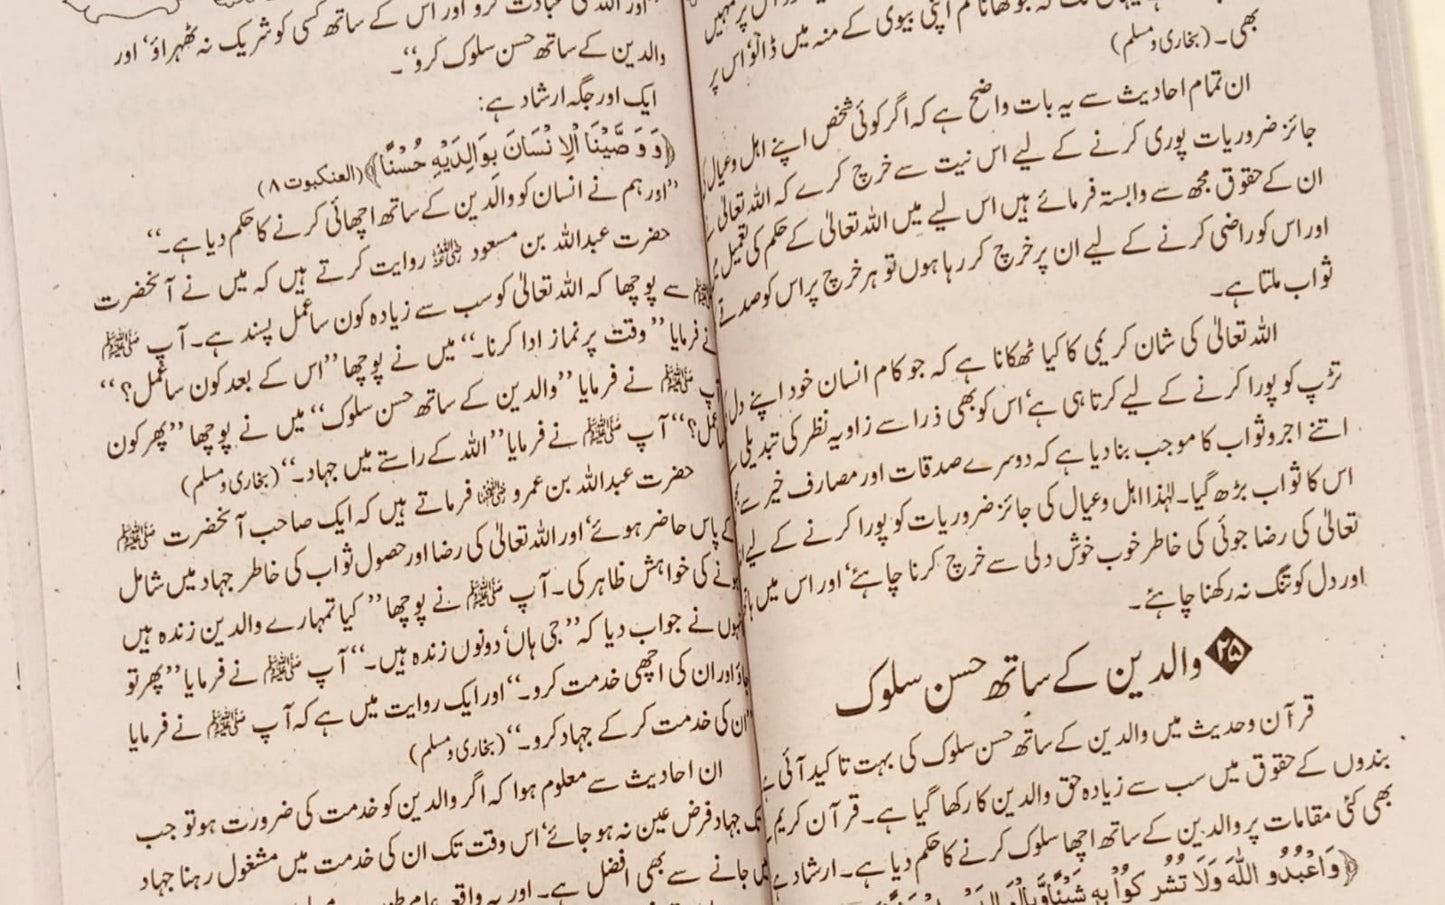 اپنی بیوی کے منہ میں ڈالو اس پر
بھی۔ (بخاری و مسلم)
ان تمام احادیث سے یہ بات واضح ہے کہ اگر کوئی شخص اپنے اہل و عیال
جائز ضروریات پوری کرنے کے لیے اس نیت سے خرچ کرے کہ اللہ تعالیٰ
ان کے حقوق مجھ سے وابستہ فرمائے ہیں اس لیے میں اللہ تعالیٰ کے حکم کی تعمیل
اور اس کو راضی کرنے کے لیے ان پر خرچ کر رہا ہوں تو ہر خرچ پر اس کو صدقے
ثواب ملتا ہے۔
اللہ تعالیٰ کی شان کریمی کا کیا ٹھکانا ہے کہ جو کام انسان خود اپنے دل
تڑپ کو پورا کرنے کے لیے کرتا ہی ہے، اس کو بھی ذرا سے زاویہ نظر کی تبدیلی
اتنے اجر و ثواب کا موجب بنا دیا ہے کہ دوسرے صدقات اور مصارف خیر سے
اس کا ثواب بڑھ گیا۔ لہٰذا اہل و عیال کی جائز ضروریات کو پورا کرنے کے لیے
تعالیٰ کی رضا جوئی کی خاطر خوب خوش دلی سے خرچ کرنا چاہئے، اور اس میں
اور دل کو تنگ نہ رکھنا چاہئے۔
۲۵ والدین کے ساتھ حسن سلوک
قرآن و حدیث میں والدین کے ساتھ حسن سلوک کی بہت تاکید آئی
بندوں کے حقوق میں سب سے زیادہ حق والدین کا رکھا گیا ہے۔ قرآن کریم
بھی کئی مقامات پر والدین کے ساتھ اچھا سلوک کرنے کا حکم دیا ہے۔ ارشاد ہے
﴿وَاعْبُدُوا اللّٰهَ وَلَا تُشْرِكُوْا بِهٖ شَيْئًا وَّبِالْوَالِدَيْنِ
اور اس کے ساتھ کسی کو شریک نہ ٹھہراؤ، اور
والدین کے ساتھ حسن سلوک کرو“۔
ایک اور جگہ ارشاد ہے:
﴿وَوَصَّيْنَا الْاِنْسَانَ بِوَالِدَيْهِ حُسْنًا﴾ (العنکبوت ۸)
”اور ہم نے انسان کو والدین کے ساتھ اچھائی کرنے کا حکم دیا ہے۔“
حضرت عبداللہ بن مسعود ؓ روایت کرتے ہیں کہ میں نے آنحضرت
ﷺ سے پوچھا کہ اللہ تعالیٰ کو سب سے زیادہ کون سا عمل پسند ہے۔ آپ ﷺ
نے فرمایا ”وقت پر نماز ادا کرنا۔“ میں نے پوچھا ”اس کے بعد کون سا عمل؟“
آپ ﷺ نے فرمایا ”والدین کے ساتھ حسن سلوک“ میں نے پوچھا ”پھر کون
سا عمل؟“ آپ ﷺ نے فرمایا ”اللہ کے راستے میں جہاد۔“ (بخاری و مسلم)
حضرت عبداللہ بن عمرو ؓ فرماتے ہیں کہ ایک صاحب آنحضرت ﷺ
کے پاس حاضر ہوئے، اور اللہ تعالیٰ کی رضا اور حصول ثواب کی خاطر جہاد میں شامل
ہونے کی خواہش ظاہر کی۔ آپ ﷺ نے پوچھا ”کیا تمہارے والدین زندہ ہیں
انہوں نے جواب دیا کہ ”جی ہاں، دونوں زندہ ہیں۔“ آپ ﷺ نے فرمایا ”پھر تو
جاؤ اور ان کی اچھی خدمت کرو۔“ اور ایک روایت میں ہے کہ آپ ﷺ نے فرمایا
”ان کی خدمت کر کے جہاد کرو۔“ (بخاری و مسلم)
ان احادیث سے معلوم ہوا کہ اگر والدین کو خدمت کی ضرورت ہو تو جب
تک جہاد فرض عین نہ ہو جائے، اس وقت تک ان کی خدمت میں مشغول رہنا جہاد
میں جانے سے بھی افضل ہے۔ اور یہ واقعہ